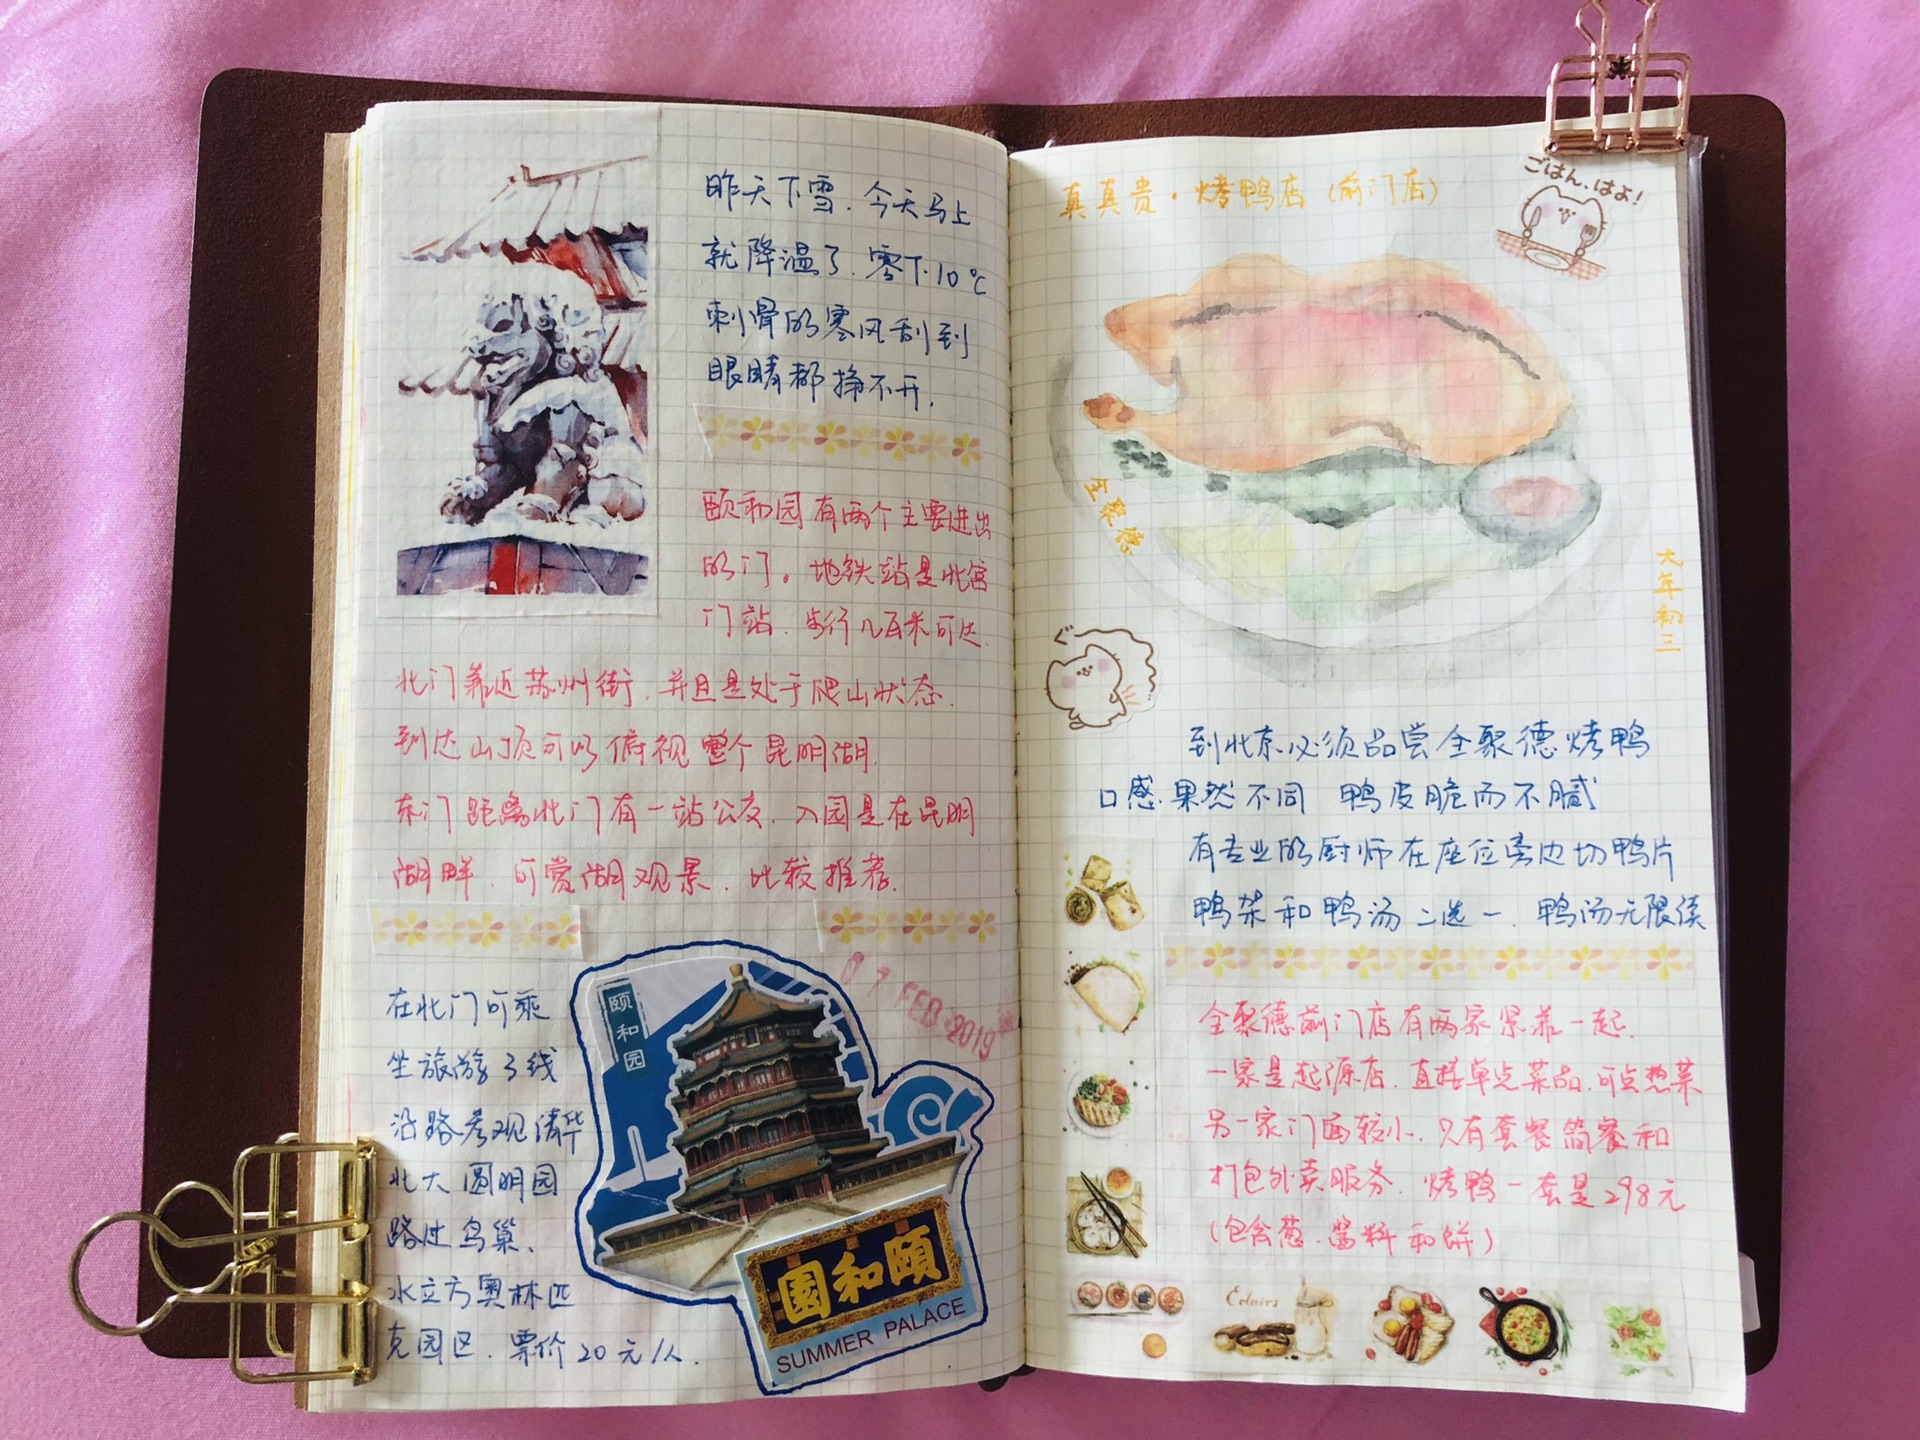 昨天下雪.今天马上
就降温了.零下10℃
刺骨的寒风刮到
眼睛都挣不开.
颐和园有两个主要进出
的门。地铁站是北宫
门站.步行几百米可达.
北门靠近苏州街.并且是处于爬山状态.
到达山顶可以俯视整个昆明湖.
东门距离北门有一站公交.入园是在昆明
湖畔.可赏湖观景.比较推荐.
在北门可乘
坐旅游3线
沿路参观清华
北大圆明园
路过鸟巢、
水立方奥林匹
克园区.票价20元/人.
颐和园
07 FEB 2019
園和頤
SUMMER PALACE
真真贵·烤鸭店(前门店)
ごはん、はよ!
全聚德
大年初三
到北京必须品尝全聚德烤鸭
口感果然不同 鸭皮脆而不腻
有专业的厨师在座位旁边切鸭片
鸭架和鸭汤二选一.鸭汤无限续
全聚德前门店有两家紧靠一起.
一家是起源店.直接单点菜品.可点热菜
另一家门面较小.只有套餐简餐和
打包外卖服务.烤鸭一套是298元
(包含葱.酱料和饼)
Eclairs